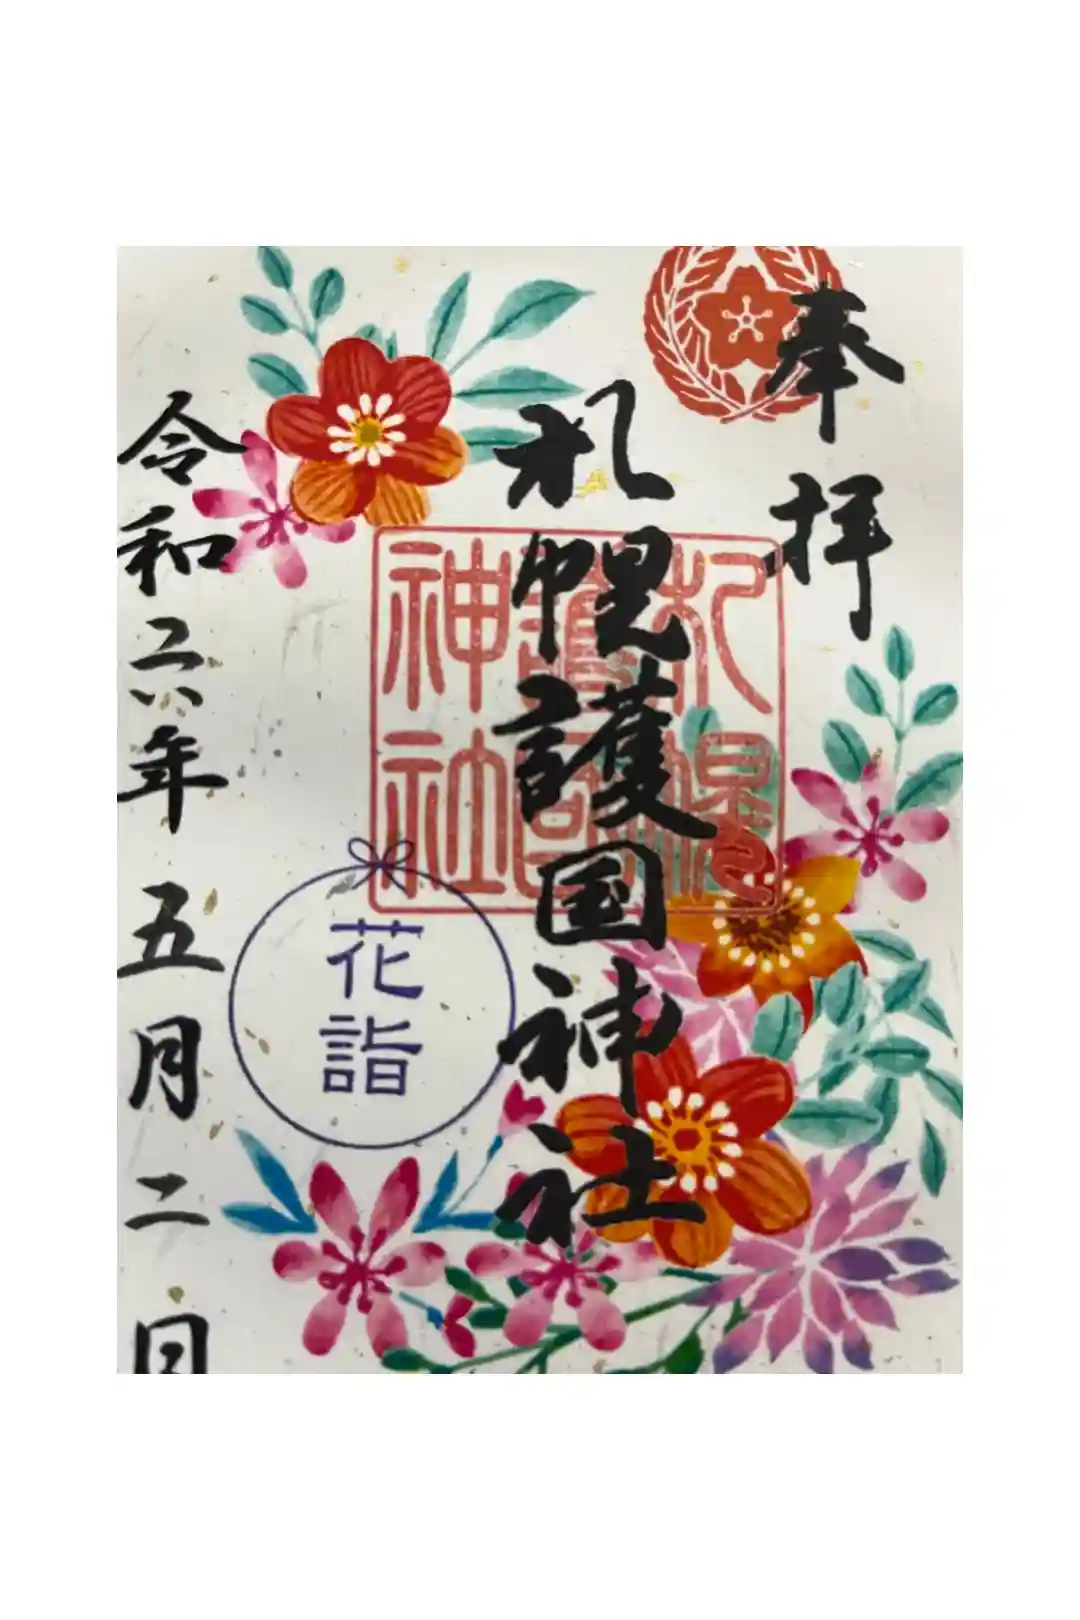 奉拝
札幌護国神社
札幌
護国
神社
花詣
令和六年五月二日